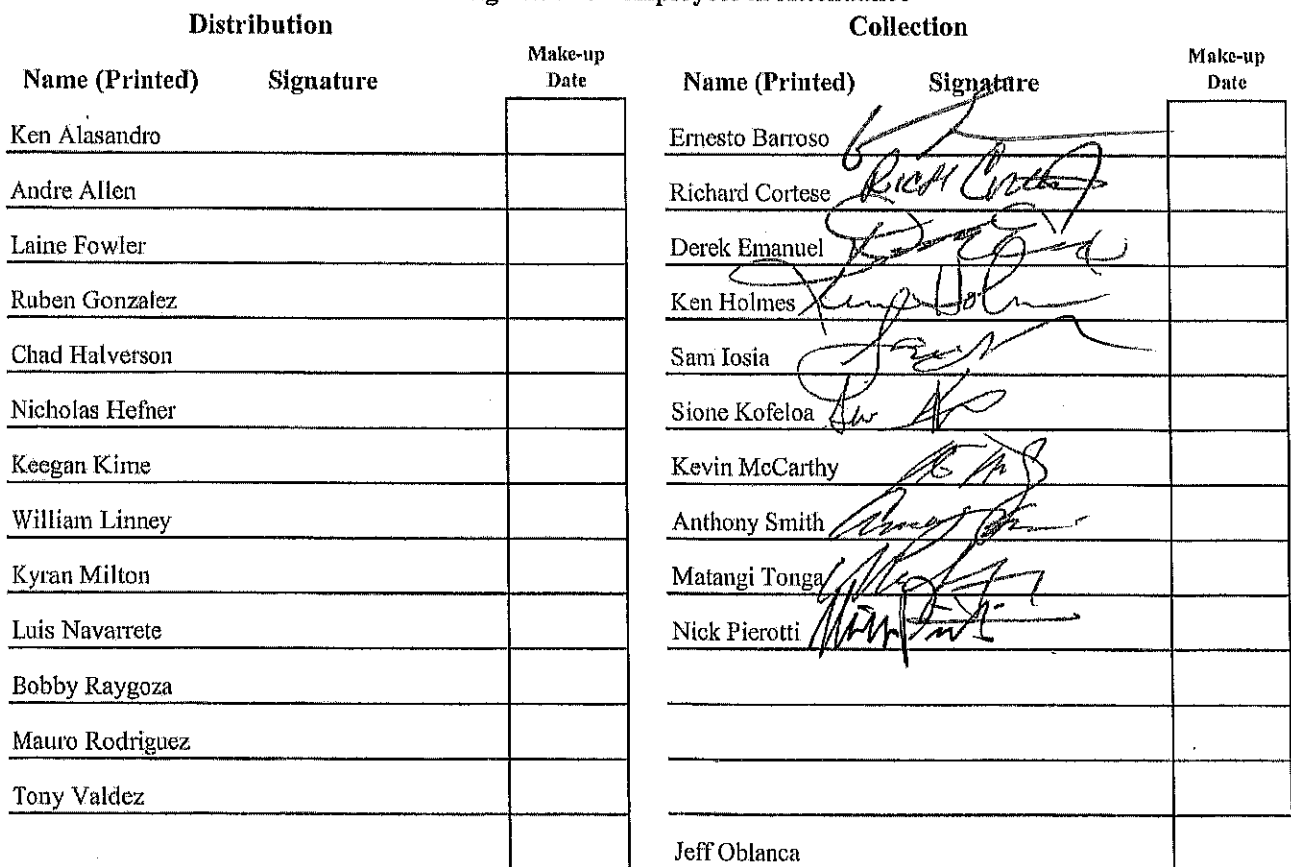 Distribution
Name (Printed) Signature Make-up Date
Ken Alasandro
Andre Allen
Laine Fowler
Ruben Gonzalez
Chad Halverson
Nicholas Hefner
Keegan Kime
William Linney
Kyran Milton
Luis Navarrete
Bobby Raygoza
Mauro Rodriguez
Tony Valdez
Collection
Name (Printed) Signature Make-up Date
Ernesto Barroso
Richard Cortese Rich Cortese
Derek Emanuel
Ken Holmes Ken Holm
Sam Iosia
Sione Kofeloa
Kevin McCarthy
Anthony Smith
Matangi Tonga
Nick Pierotti
Jeff Oblanca